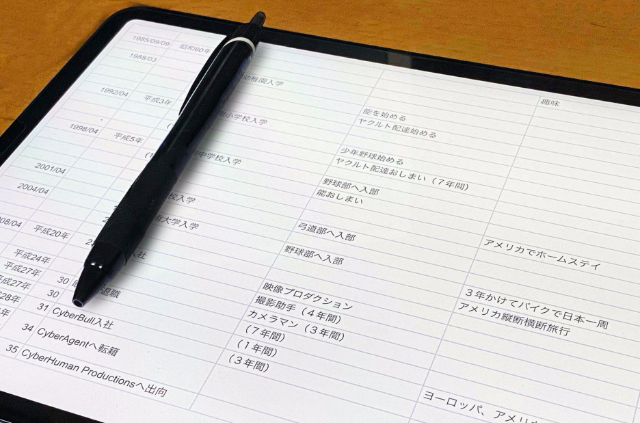 趣味
1985/09/09 昭和60年
1988/03
幼稚園入学
能を始める
1992/04 平成3年
小学校入学
ヤクルト配達始める
少年野球始める
1998/04 平成5年
中学校入学
ヤクルト配達おしまい（7年間）
野球部へ入部
2001/04
校入学
能おしまい
2004/04
大学入学
弓道部へ入部
アメリカでホームステイ
08/04 平成20年
入社
野球部へ入部
平成24年
平成27年 30
退職
映像プロダクション
3年かけてバイクで日本一周
平成27年 30
撮影助手（4年間）
アメリカ縦断横断旅行
28年 31 CyberBull入社
カメラマン（3年間）
（7年間）
34 CyberAgentへ転籍
（1年間）
35 CyberHuman Productionsへ出向
（3年間）
ヨーロッパ、アメリカ